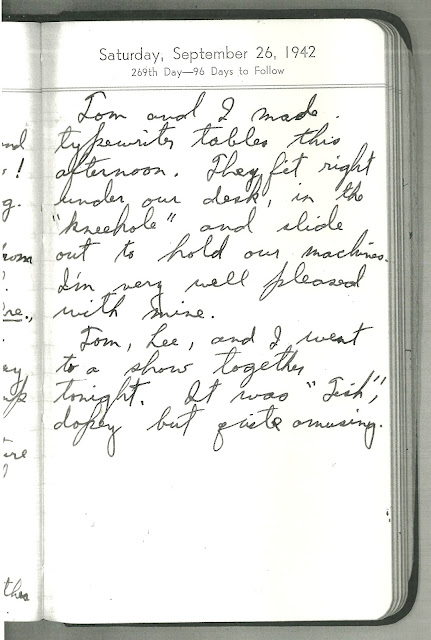 Saturday, September 26, 1942
269th Day—96 Days to Follow
Tom and I made
typewriter tables this
afternoon. They fit right
under our desk, in the
"kneehole" and slide
out to hold our machines.
I'm very well pleased
with mine.
Tom, Lee, and I went
to a show together
tonight. It was "Tish",
dopey but quite amusing.